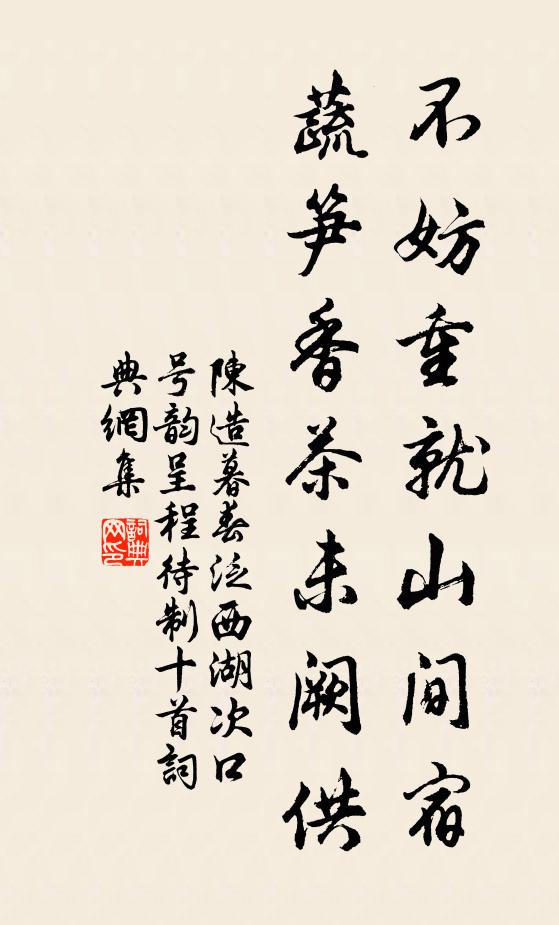 不妨重就山間宿
蔬笋香茶未阙供
陳造暮春泛西湖次口
号韵呈程待制十首詞
典網集
詞典
网印